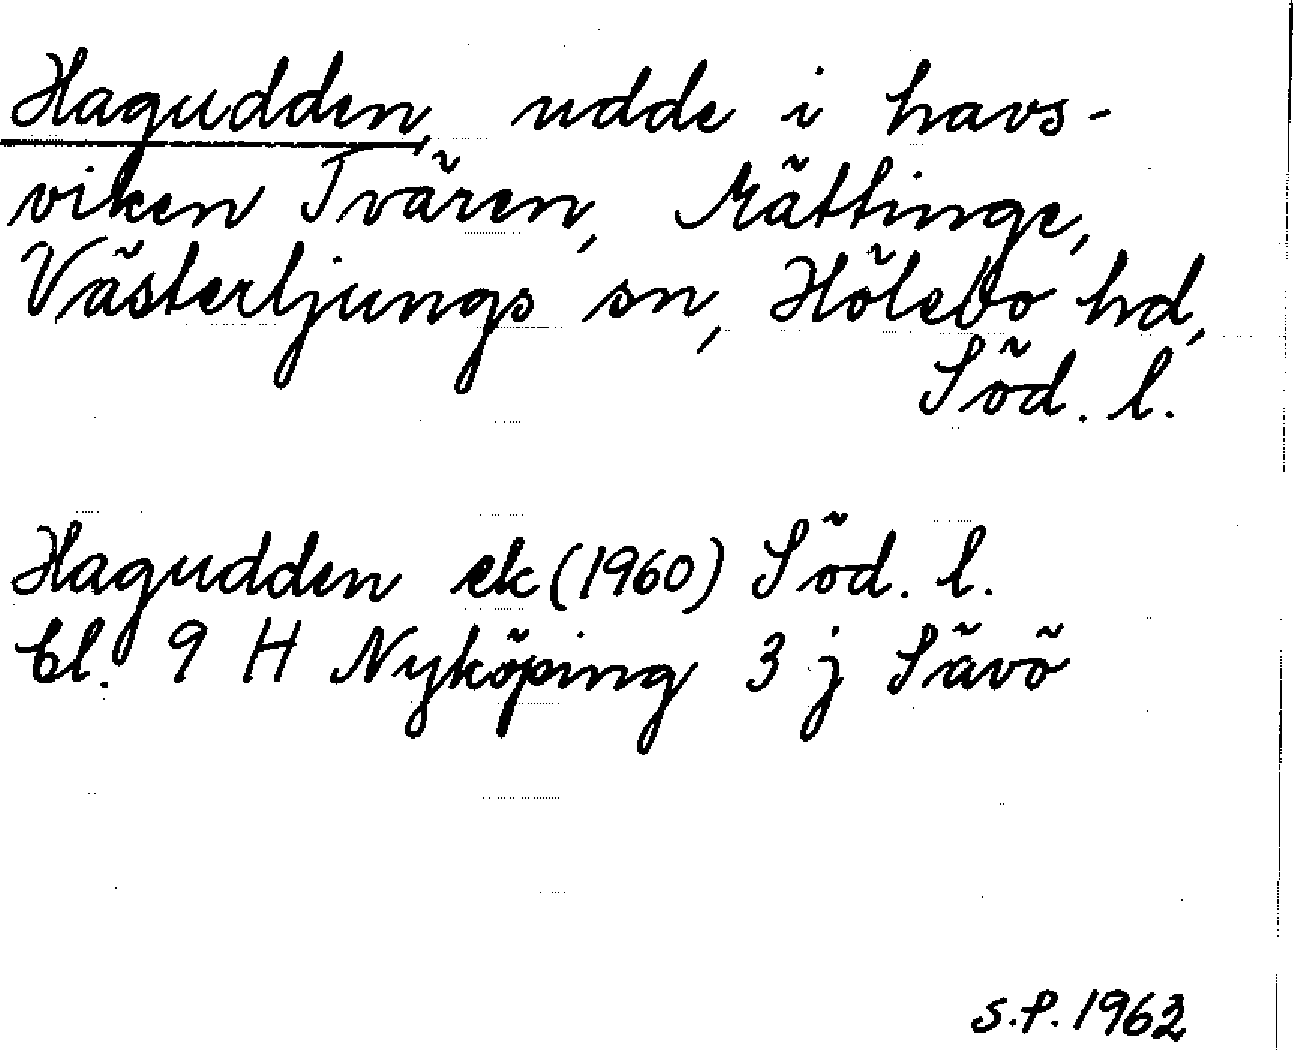 Hagudden, udde i havs-
viken Tvären, Mättinge,
Västerljungs sn, Hölebo hd,
Söd. l.
Hagudden ek (1960) Söd. l.
bl. 9 H Nyköping 3 j Sävö
S.P. 1963